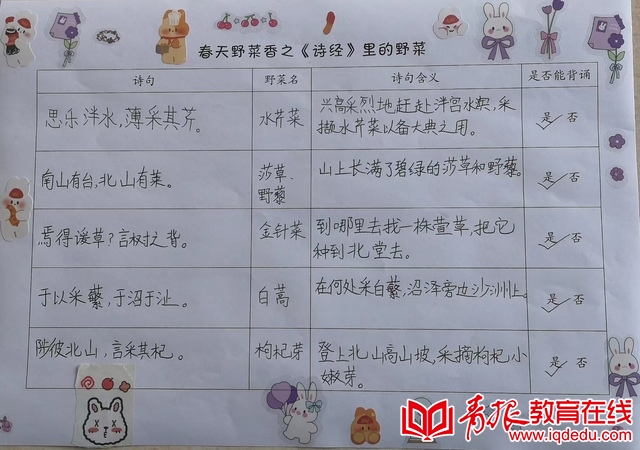 春天野菜香之《诗经》里的野菜
诗句 野菜名 诗句含义 是否能背诵
思乐泮水,薄采其芹。 水芹菜 兴高采烈地赶赴泮宫水滨,采
撷水芹菜以备大典之用。 是 否
南山有台,北山有莱。 莎草、
野藜 山上长满了碧绿的莎草和野藜。 是 否
焉得谖草?言树之背。 金针菜 到哪里去找一株萱草,把它
种到北堂去。 是 否
于以采蘩,于沼于沚。 白蒿 在何处采白蘩,沼泽旁边沙洲上。 是 否
陟彼北山,言采其杞。 枸杞芽 登上北山高山坡,采摘枸杞小
嫩芽。 是 否
青报教育在线
www.iqdedu.com